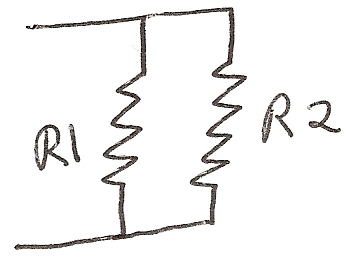 R1
R2